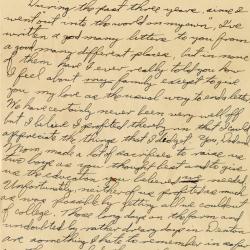 During the past three years, since I
went out into the world on my own, I've
written a good many letters to you from
a good many different places, but in none
of them have I ever really told you how
I feel about my family except to give
you my love as the usual way to end a letter.
We have certainly never been very well off
but I believe I profited thereby in that I can
appreciate the things that I do get. You, Dad and
Mom, made a lot of sacrifices to raise us
two boys as you thought best and to give
us the education you believed we needed.
Unfortunately, neither of us profited as much
as was possible by getting all we could out
of college. Those long days on the farm and
undoubtedly rather dreary days in Denton
are something I hate to remember in a